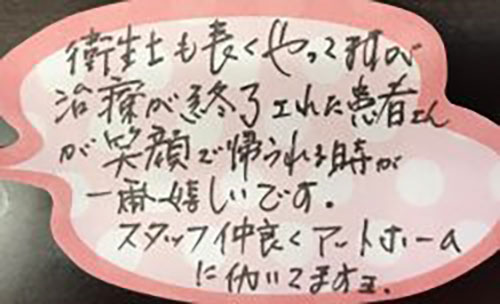 衛生士も長くやってますが
治療が終了された患者さん
が笑顔で帰られる時が
一番嬉しいです。
スタッフ仲良くアットホーム
に働いてますヨ.